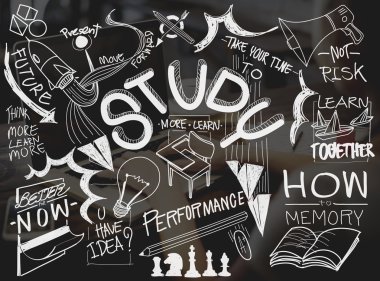 Present
MOVE
FORWARD
FUTURE
TAKE YOUR TIME
TO
NOT
RISK
STUDY
MORE LEARN
THINK
MORE
LEARN
MORE
LEARN
TOGETHER
BETTER
NOW
U
HAVE
IDEA?
PERFORMANCE
HOW
TO
MEMORY